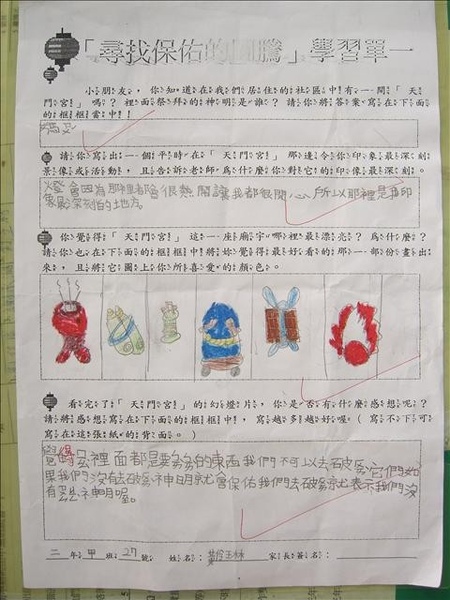 「尋找保佑的圖騰」學習單一
小朋友，你知道在我們居住的社區中有一間「天
門宮」嗎？裡面祭拜的神明是誰？請你將答案寫在下面
的框框當中！
媽祖
請你寫出一個平時在「天門宮」那邊令你印象最深刻
景像或活動，且告訴老師為什麼你對它的印像最深刻。
燈會因為那裡都會很熱鬧讓我都很開心所以那裡是我印
象最深刻的地方。
你覺得「天門宮」這一座廟宇哪裡最漂亮？為什麼？
請你也在下面的框框中將妳覺得最好看的那一部份畫出
來，且將它圖上你所喜愛的顏色。
看完了「天門宮」的幻燈片，你是否有什麼感想呢？
請將感想寫在下面的框框中！，寫越多越好喔（寫不下可
寫在這張紙的背面。）
覺得
裡面都是
的東西我們不可以去破
它們如
果我們沒有去破
神明就會保佑我們去破
就表示我們沒
有
神明喔。
二年甲班27號 姓名： 家長簽名：